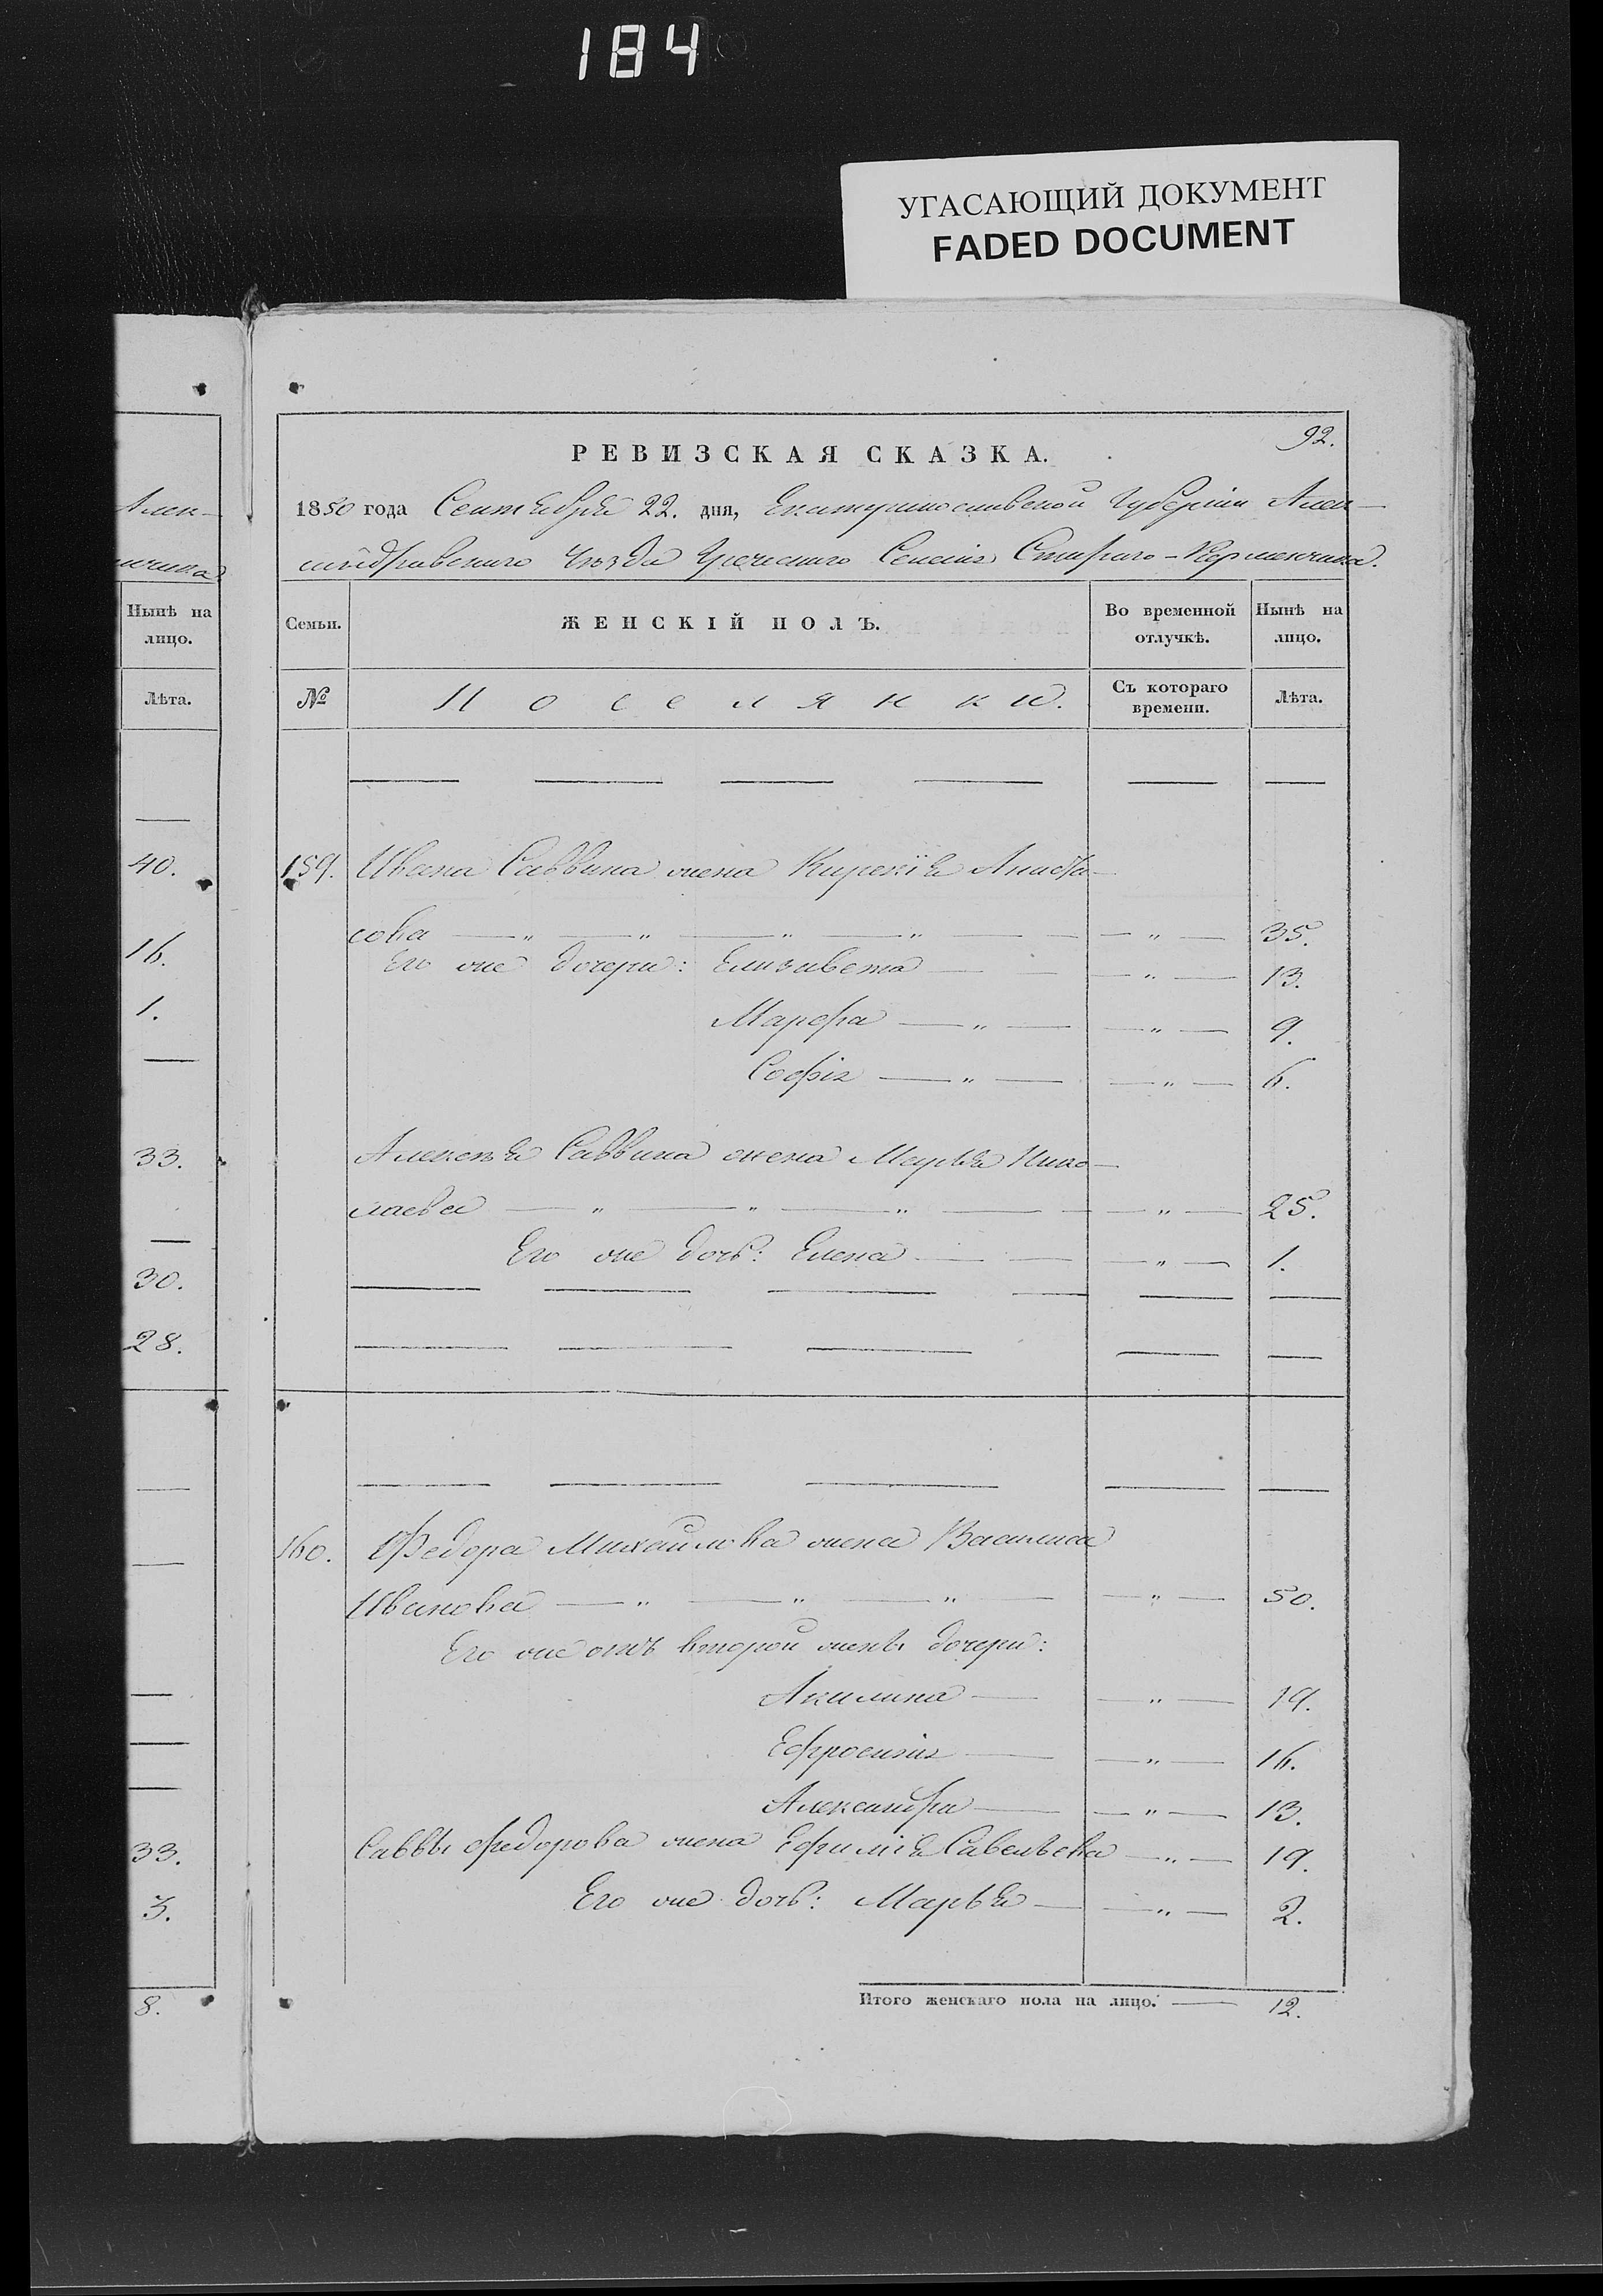 184
УГАСАЮЩИЙ ДОКУМЕНТ
FADED DOCUMENT
Алек-
нчика
Нынѣ на
лицо.
Лѣта.
40.
16.
1.
33.
30.
28.
33.
3.
8.
92.
РЕВИЗСКАЯ СКАЗКА.
1850 года Сентября 22. дня, Екатеринославской Губерніи Алек-
сандровскаго Уѣзда Греческаго Селенія Стараго-Керменчика.
Семьи. ЖЕНСКІЙ ПОЛЪ. Во временной отлучкѣ. Нынѣ на лицо.
№ Поселянки. Съ котораго времени. Лѣта.
159. Ивана Саввина жена Кирекія Анаста-
сова — „ — „ — „ — „ — — „ — 35.
Его же дочери: Елизавета — — „ — 13.
Марфа — „ — — „ — 9.
Софія — „ — — „ — 6.
Алексѣя Саввина жена Марья Нико-
лаева — „ — „ — „ — — „ — 25.
Его же дочь: Елена — — „ — 1.
160. Федора Михайлова жена Василиса
Иванова — „ — „ — „ — — „ — 50.
Его же отъ второй жены дочери:
Акилина — — „ — 19.
Ефросинія — — „ — 16.
Александра — — „ — 13.
Саввы Федорова жена Ефимія Савельева — „ — 19.
Его же дочь: Марья — — „ — 2.
Итого женскаго пола на лицо. — 12.